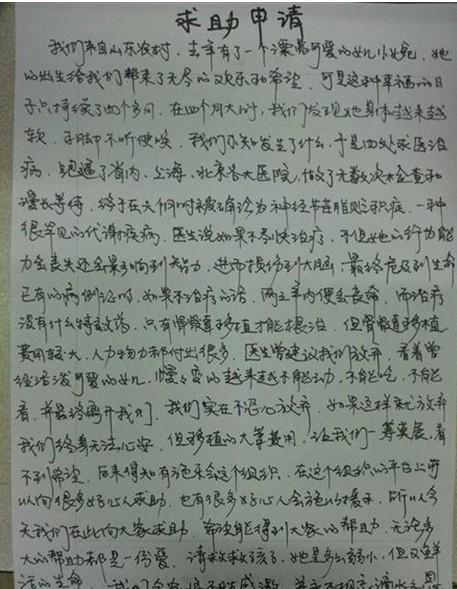 求助申请
我们来自山东农村,去年有了一个漂亮可爱的女儿小妮,她
的出生给我们带来了无尽的欢乐和希望,可是这种幸福的日
子只持续了四个多月,在四个月大时,我们发现她身体越来越
软,手脚不听使唤,我们不知发生了什么,于是四处求医治
病,跑遍了省内、上海、北京各大医院,做了无数次本检查和
漫长等待,终于在天 被确诊为神经节苷脂沉积症,一种
很罕见的代谢疾病,医生说如果不尽快治疗,不但她的行为能
力会丧失还会影响到智力,进而损伤到大脑,最终危及到生命
已有的病例证明,如果不治疗的话,两三年内便会丧命,而治疗
没有什么特效药,只有骨髓移植才能根治,但骨髓移植
费用较大,人力物力都付出很多,医生曾建议我们放弃,看着曾
经活泼可爱的女儿,慢慢的越来越不能动,不能吃,不能
看,并最终离开我们,我们实在不忍心放弃,如果这样就放弃
我们终身无法心安,但移植的大笔费用,让我们一筹莫展,看
不到希望,后来得知有 这个组织,在这个组织的平台上可
以向很多好心人求助,也有很多好心人会 援手,所以今
天我们在此向大家求助,希望能得到大家的帮助,无论多
大的帮助都是一份爱,请救救孩子,她是多么弱小,但又鲜
活的生命,我们全家将不胜感激,并 滴水之恩